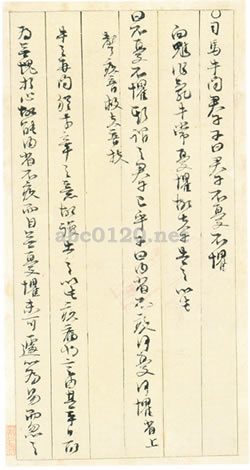 ○司馬牛問君子子曰君子不憂不懼
向魋作亂牛常憂懼故夫子告之以此
曰不憂不懼斯謂之君子已乎子曰內省不疚何憂何懼省上
聲疚音救夫音扶
牛之再問猶前章之意故復告之以此疚病也言由其平日所
為無愧於心故能內省不疚而自無憂懼未可遽以為易而忽之
abc0120.net